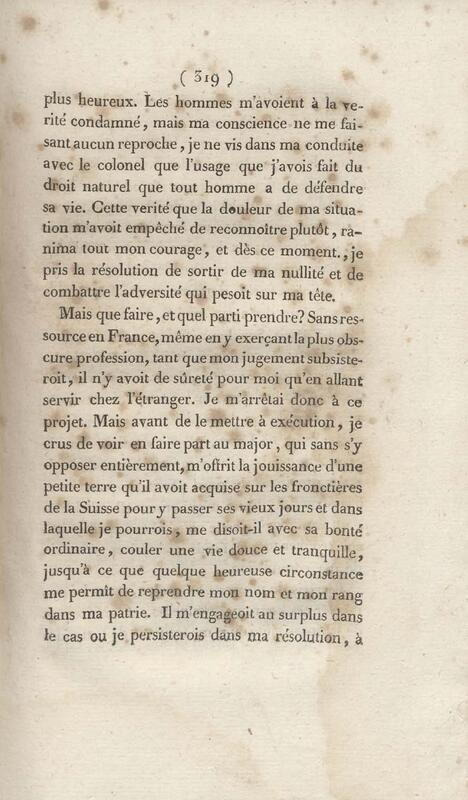 ( 319 )
plus heureux. Les hommes m'avoient à la ve-
rité condamné, mais ma conscience ne me fai-
sant aucun reproche, je ne vis dans ma conduite
avec le colonel que l'usage que j'avois fait du
droit naturel que tout homme a de défendre
sa vie. Cette verité que la douleur de ma situa-
tion m'avoit empêché de reconnoître plutôt, ra-
nima tout mon courage, et dès ce moment., je
pris la résolution de sortir de ma nullité et de
combattre l'adversité qui pesoit sur ma tête.
Mais que faire, et quel parti prendre? Sans res-
source en France, même en y exerçant la plus obs-
cure profession, tant que mon jugement subsiste-
roit, il n'y avoit de sûreté pour moi qu'en allant
servir chez l'étranger. Je m'arrêtai donc à ce
projet. Mais avant de le mettre à exécution, je
crus de voir en faire part au major, qui sans s'y
opposer entièrement, m'offrit la jouissance d'une
petite terre qu'il avoit acquise sur les fronctières
de la Suisse pour y passer ses vieux jours et dans
laquelle je pourrois, me disoit-il avec sa bonté
ordinaire, couler une vie douce et tranquille,
jusqu'à ce que quelque heureuse circonstance
me permît de reprendre mon nom et mon rang
dans ma patrie. Il m'engageoit au surplus dans
le cas ou je persisterois dans ma résolution, à